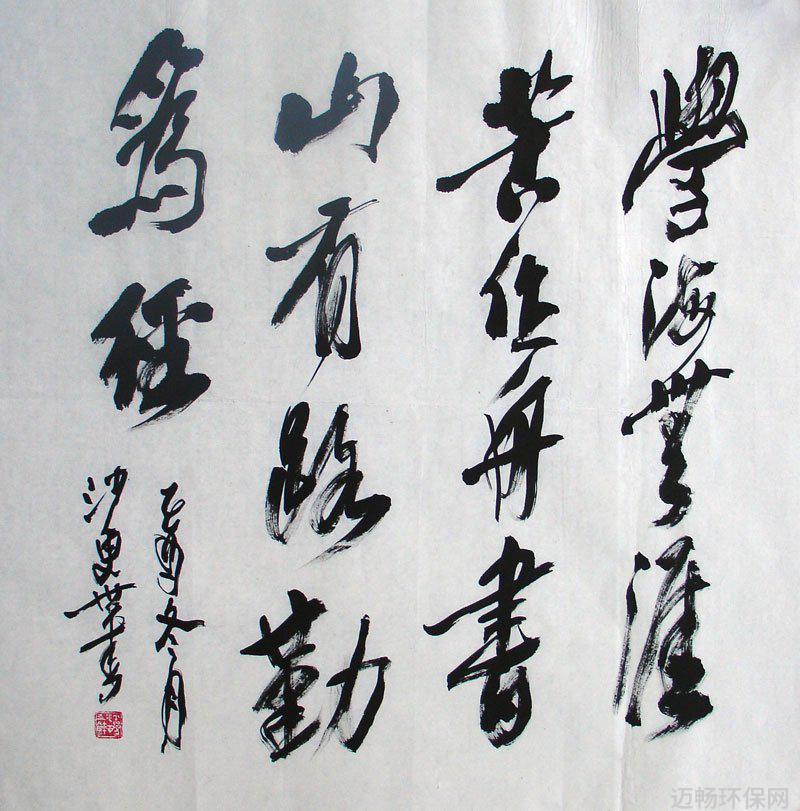 學海無涯
苦作舟書
山有路勤
為徑
乙酉冬月
沙更世書
迈畅环保网